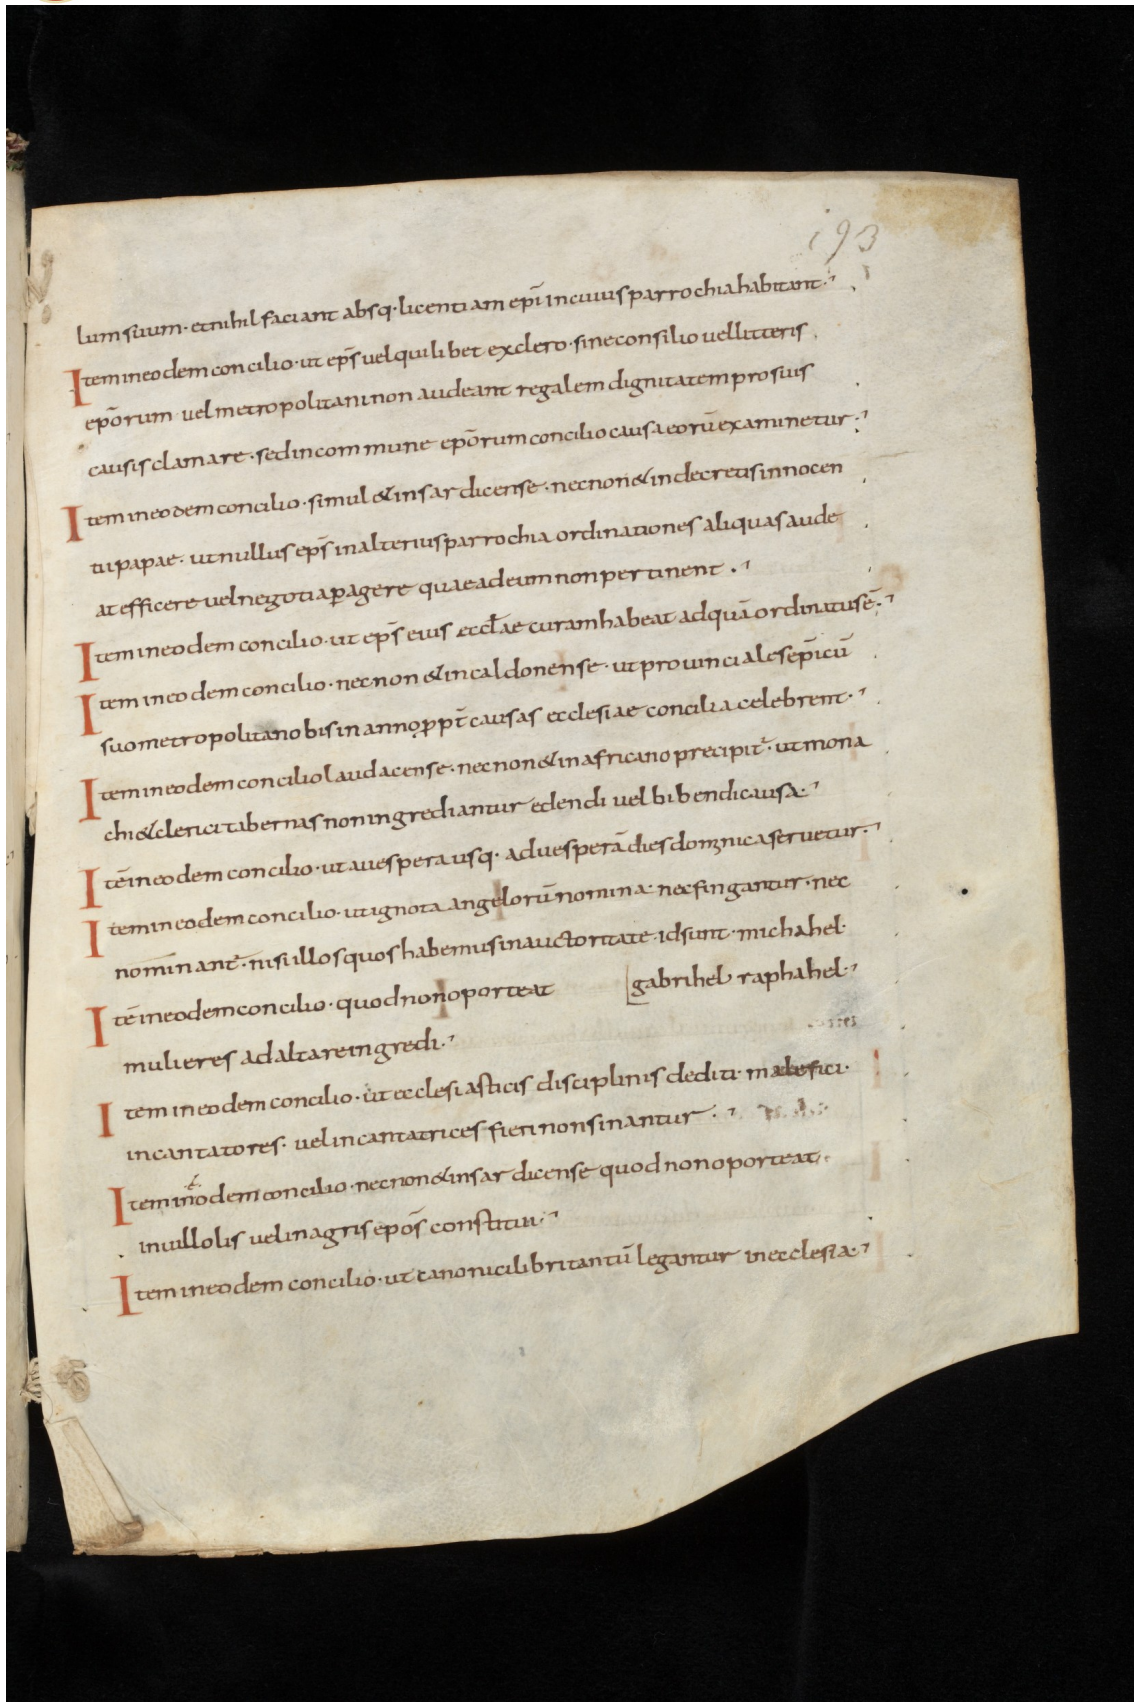 193
lum suum · et nihil faciant absq· licentiam ep̄i in cuius parrochia habitant·
Item in eodem concilio · ut ep̄s vel quilibet ex clero · sine consilio vel litteris
ep̄orum vel metropolitani non audeant regalem dignitatem pro suis
causis clamare · sed in commune ep̄orum concilio causa eorū examinetur·
Item in eodem concilio · simul & in sardicense · necnon & in decretis innocen
tii papae · ut nullus ep̄s in alterius parrochia ordinationes aliquas aude
at efficere vel negotia ꝑagere quae ad eum non pertinent ·
Item in eodem concilio · ut ep̄s eius eccl̄ae curam habeat ad quā ordinatus ē·
Item in eodem concilio · necnon & in caldonense · ut provinciales ep̄i cū
suo metropolitano bis in anno ꝓpt̄ causas ecclesiae concilia celebrent·
Item in eodem concilio laudacense · necnon & in africano precipit̄ · ut mona
chi & clerici tabernas non ingrediantur edendi vel bibendi causa·
Itē in eodem concilio · ut a vespera usq· ad vesperā dies domnica servetur·
Item in eodem concilio · ut ignota angelorū nomina · nec fingantur · nec
nominant̄ · nisi illos quos habemus in auctoritate · id sunt · michahel·
gabrihel raphahel·
Itē in eodem concilio · quod non oporteat
mulieres ad altare ingredi·
Item in eodem concilio · ut ecclesiasticis disciplinis dediti · malefici·
incantatores · vel incantatrices fieri non sinantur ·
Item in eodem concilio · necnon & in sardicense quod non oporteat
in villolis vel in agris ep̄os constitui·
Item in eodem concilio · ut canonici libri tantū legantur in ecclesia·